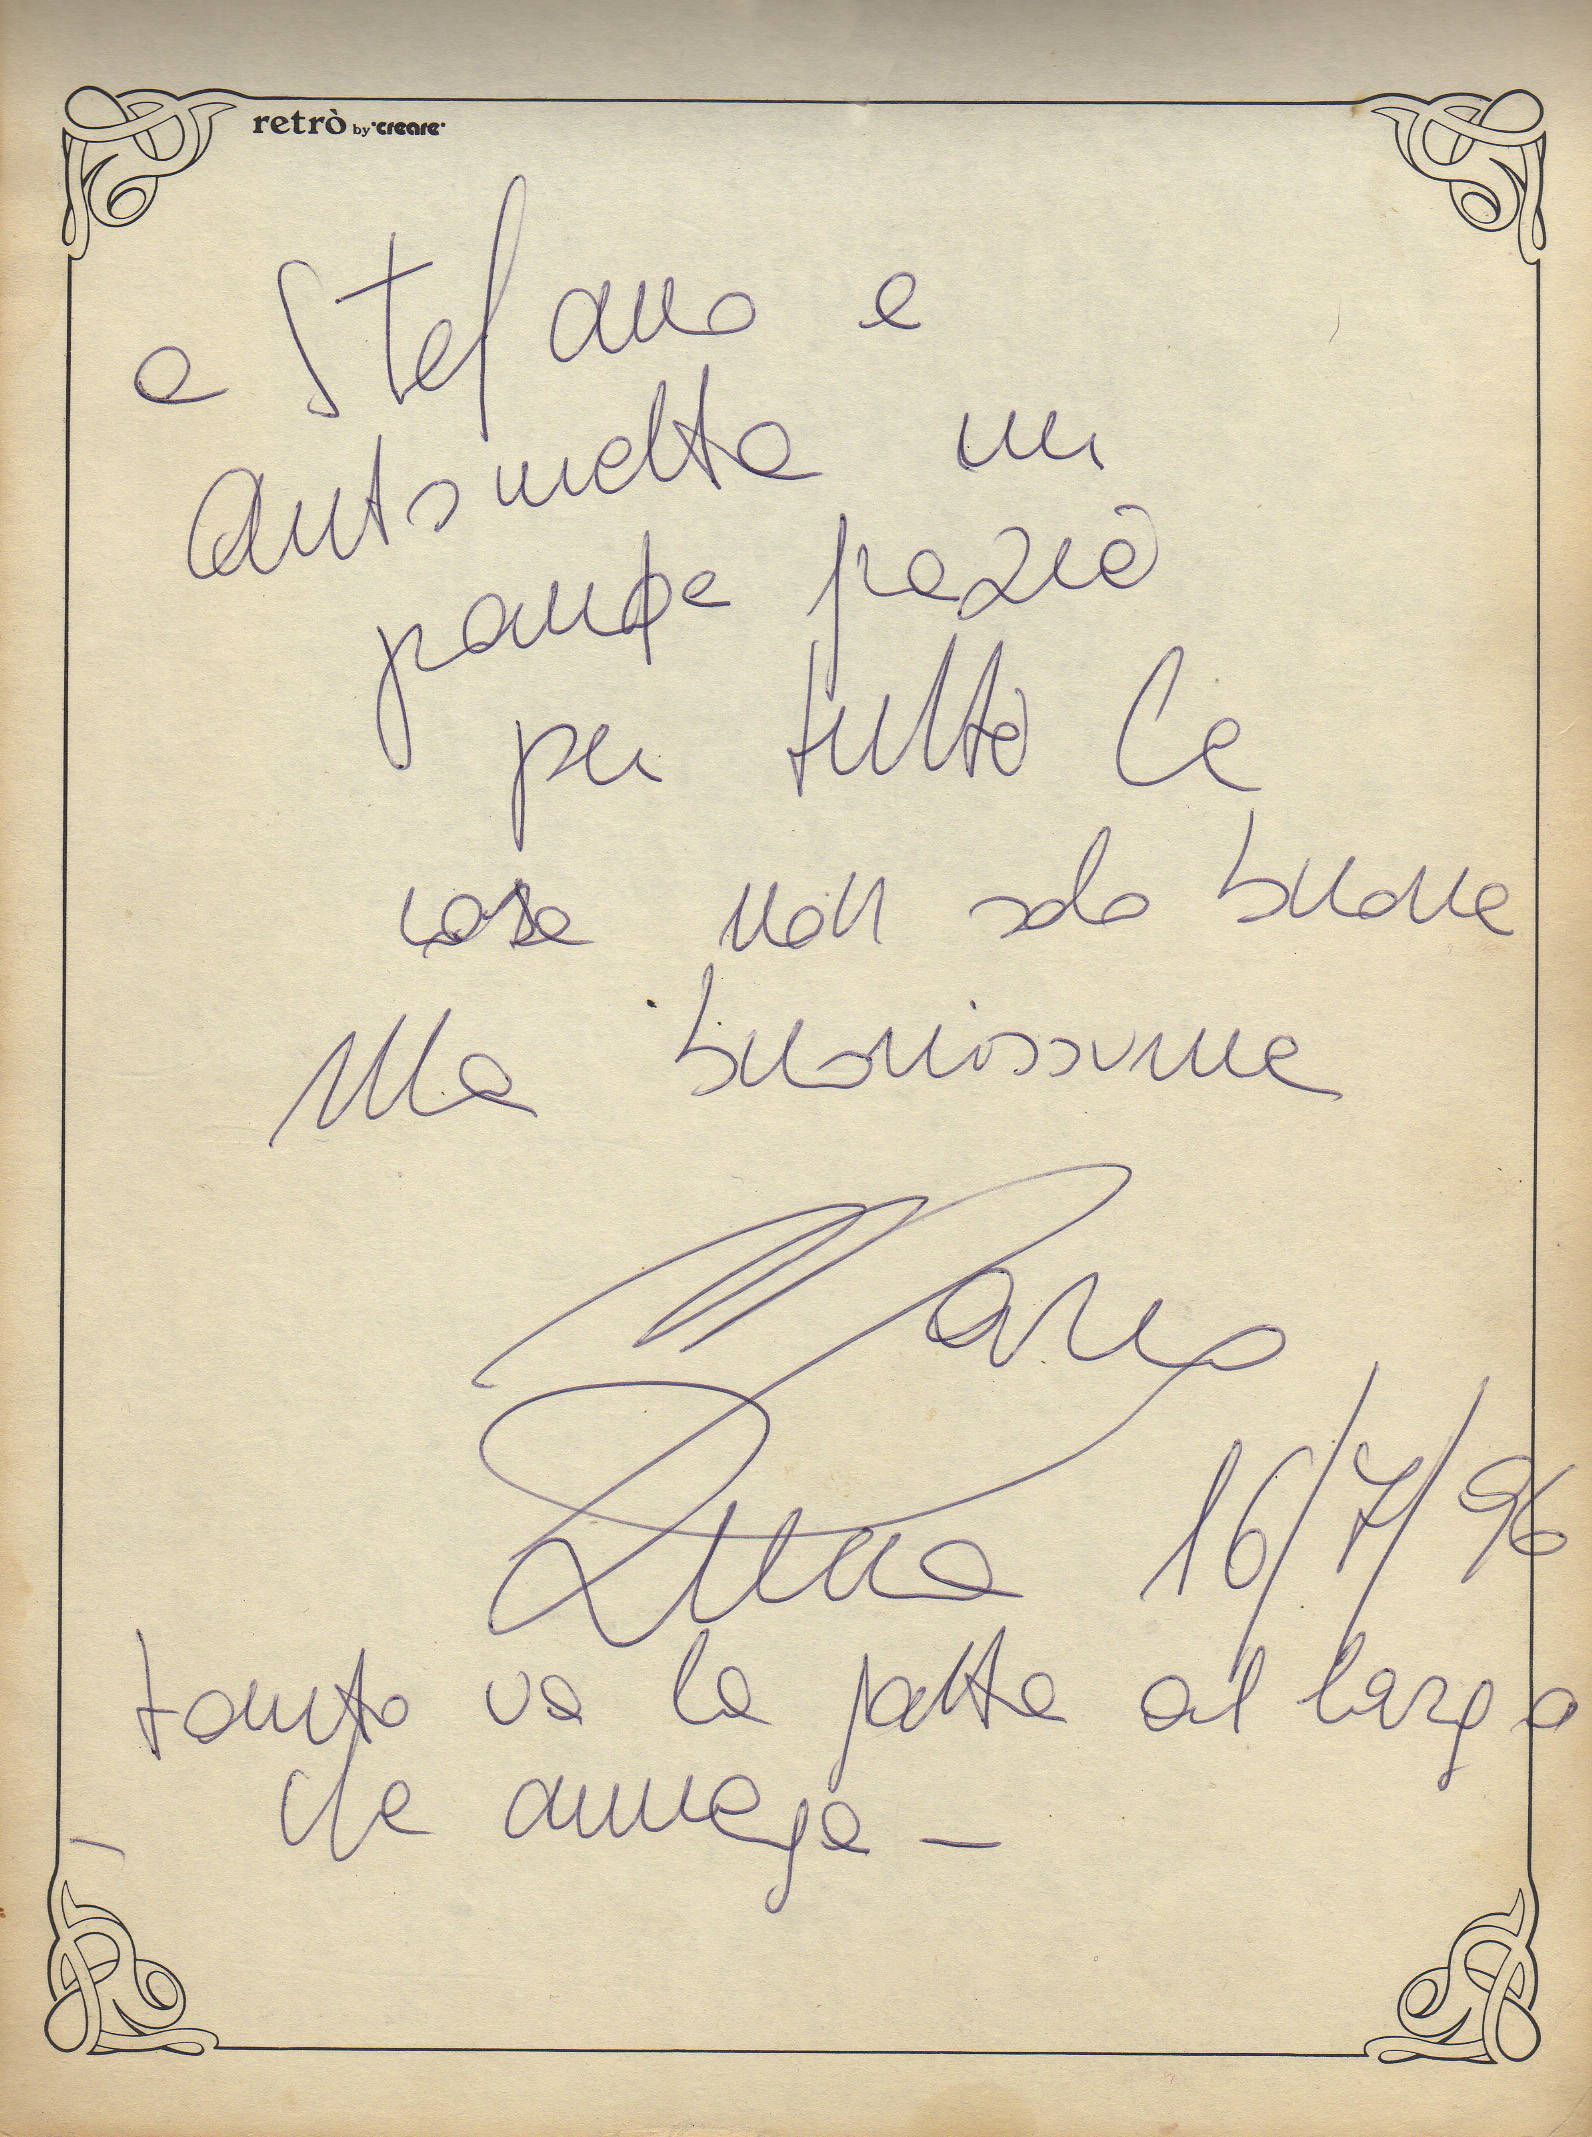 retrò by "creare"
a Stefano e
Antonietta un
grande grazie
per tutte le
cose non solo buone
Ma buonissime
Marco
Luna 16/7/96
tanto va la gatta al largo
che annega -